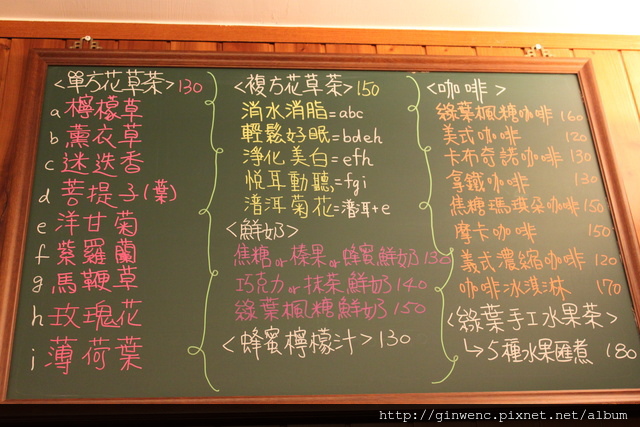 <單方花草茶>130
a 檸檬草
b 薰衣草
c 迷迭香
d 菩提子(葉)
e 洋甘菊
f 紫羅蘭
g 馬鞭草
h 玫瑰花
i 薄荷葉
<複方花草茶>150
消水消脂=abc
輕鬆好眠=bdeh
淨化美白=efh
悅耳動聽=fgi
潽洱菊花=潽洱+e
<鮮奶>
焦糖or榛果or蜂蜜鮮奶 130
巧克力or抹茶鮮奶 140
綠葉楓糖鮮奶 150
<蜂蜜檸檬汁>130
<咖啡>
綠葉楓糖咖啡 160
美式咖啡 120
卡布奇諾咖啡 130
拿鐵咖啡 130
焦糖瑪琪朵咖啡 150
摩卡咖啡 150
義式濃縮咖啡 120
咖啡冰淇淋 170
<綠葉手工水果茶>
↳5種水果匯煮 180
http://ginwenc.pixnet.net/album